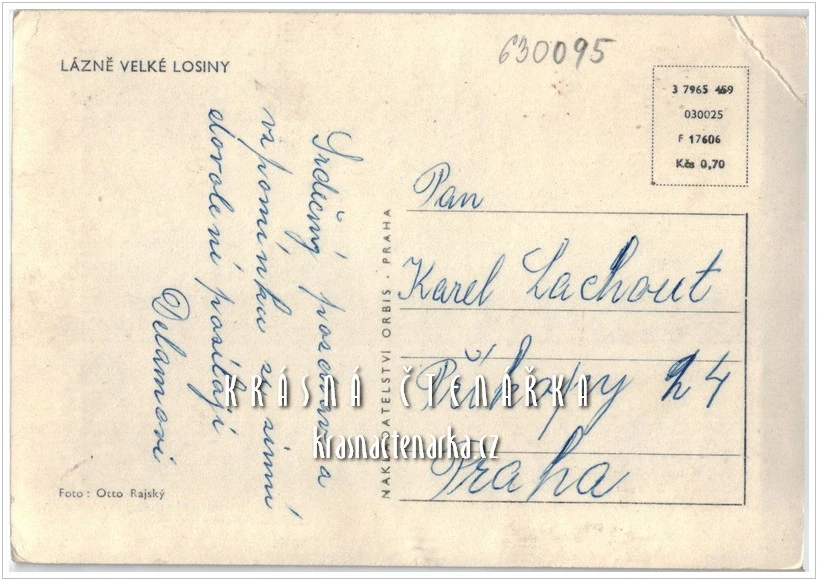 LÁZNĚ VELKÉ LOSINY
630095
3 7965 459
030025
F 17606
Kčs 0,70
Srdečný pozdrav a
vzpomínku ze zimní
dovolené posílají
Pan
Karel Lachout
Příkopy 24
Praha
NAKLADATELSTVÍ ORBIS · PRAHA
KRÁSNÁ ČTENÁŘKA
krasnactenarka.cz
Foto: Otto Rajský